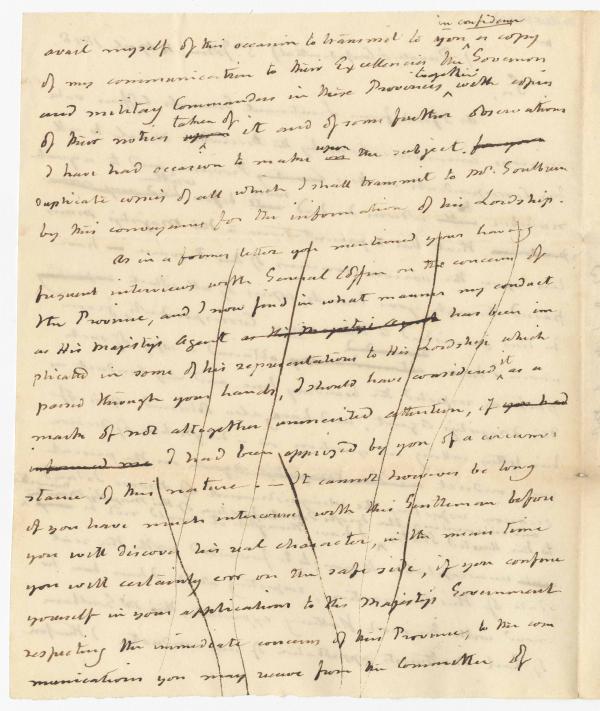 in confidence
avail myself of this occasion to transmit to you a copy
of my communication to their Excellencies the Governors
together
and military Commanders in these Provinces, with copies
taken of
of their notices upon it and of some further observations
upon
I have had occasion to make on the subject. for your
duplicate copies of all which I shall transmit to Mr. Goulburn
by this conveyance for the information of his Lordship.
As in a former letter you mentioned your having
frequent interviews with General Coffin on the concerns of
the Province, and I now find in what manner my conduct
as His Majestys Agent as His Majestys Agent has been im
plicated in some of his representations to His Lordship which
it
passed through your hands, I should have considered as a
mark of not altogether unmerited attention, if you had
informed me I had been apprized by you of a circum
stance of this nature. — It cannot however be long
if you have much intercourse with this Gentleman before
you will discover his real character, in the mean time
you will certainly err on the safe side, if you confine
yourself in your applications to His Majestys Government
respecting the immediate concerns of this Province, to the com
munications you may receive from the Committee of